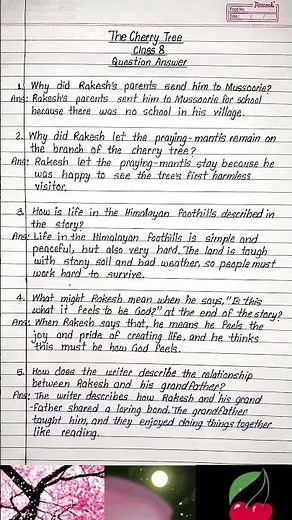 Peacock
Page No.
Date: / /
The Cherry Tree
Class 8
Question Answer
1. Why did Rakesh's parents send him to Mussoorie?
Ans: Rakesh's parents sent him to Mussoorie for school
because there was no school in his village.
2. Why did Rakesh let the praying-mantis remain on
the branch of the cherry tree?
Ans: Rakesh let the praying-mantis stay because he
was happy to see the tree's first harmless
visitor.
3. How is life in the Himalayan foothills described in
the story?
Ans: Life in the Himalayan foothills is simple and
peaceful, but also very hard. The land is tough
with stony soil and bad weather, so people must
work hard to survive.
4. What might Rakesh mean when he says, "Is this
what it feels to be God?" at the end of the story?
Ans: When Rakesh says that, he means he feels the
joy and pride of creating life, and he thinks
this must be how God feels.
5. How does the writer describe the relationship
between Rakesh and his grandfather?
Ans: The writer describes how Rakesh and his grand
-father shared a loving bond. The grandfather
taught him, and they enjoyed doing things together
like reading.